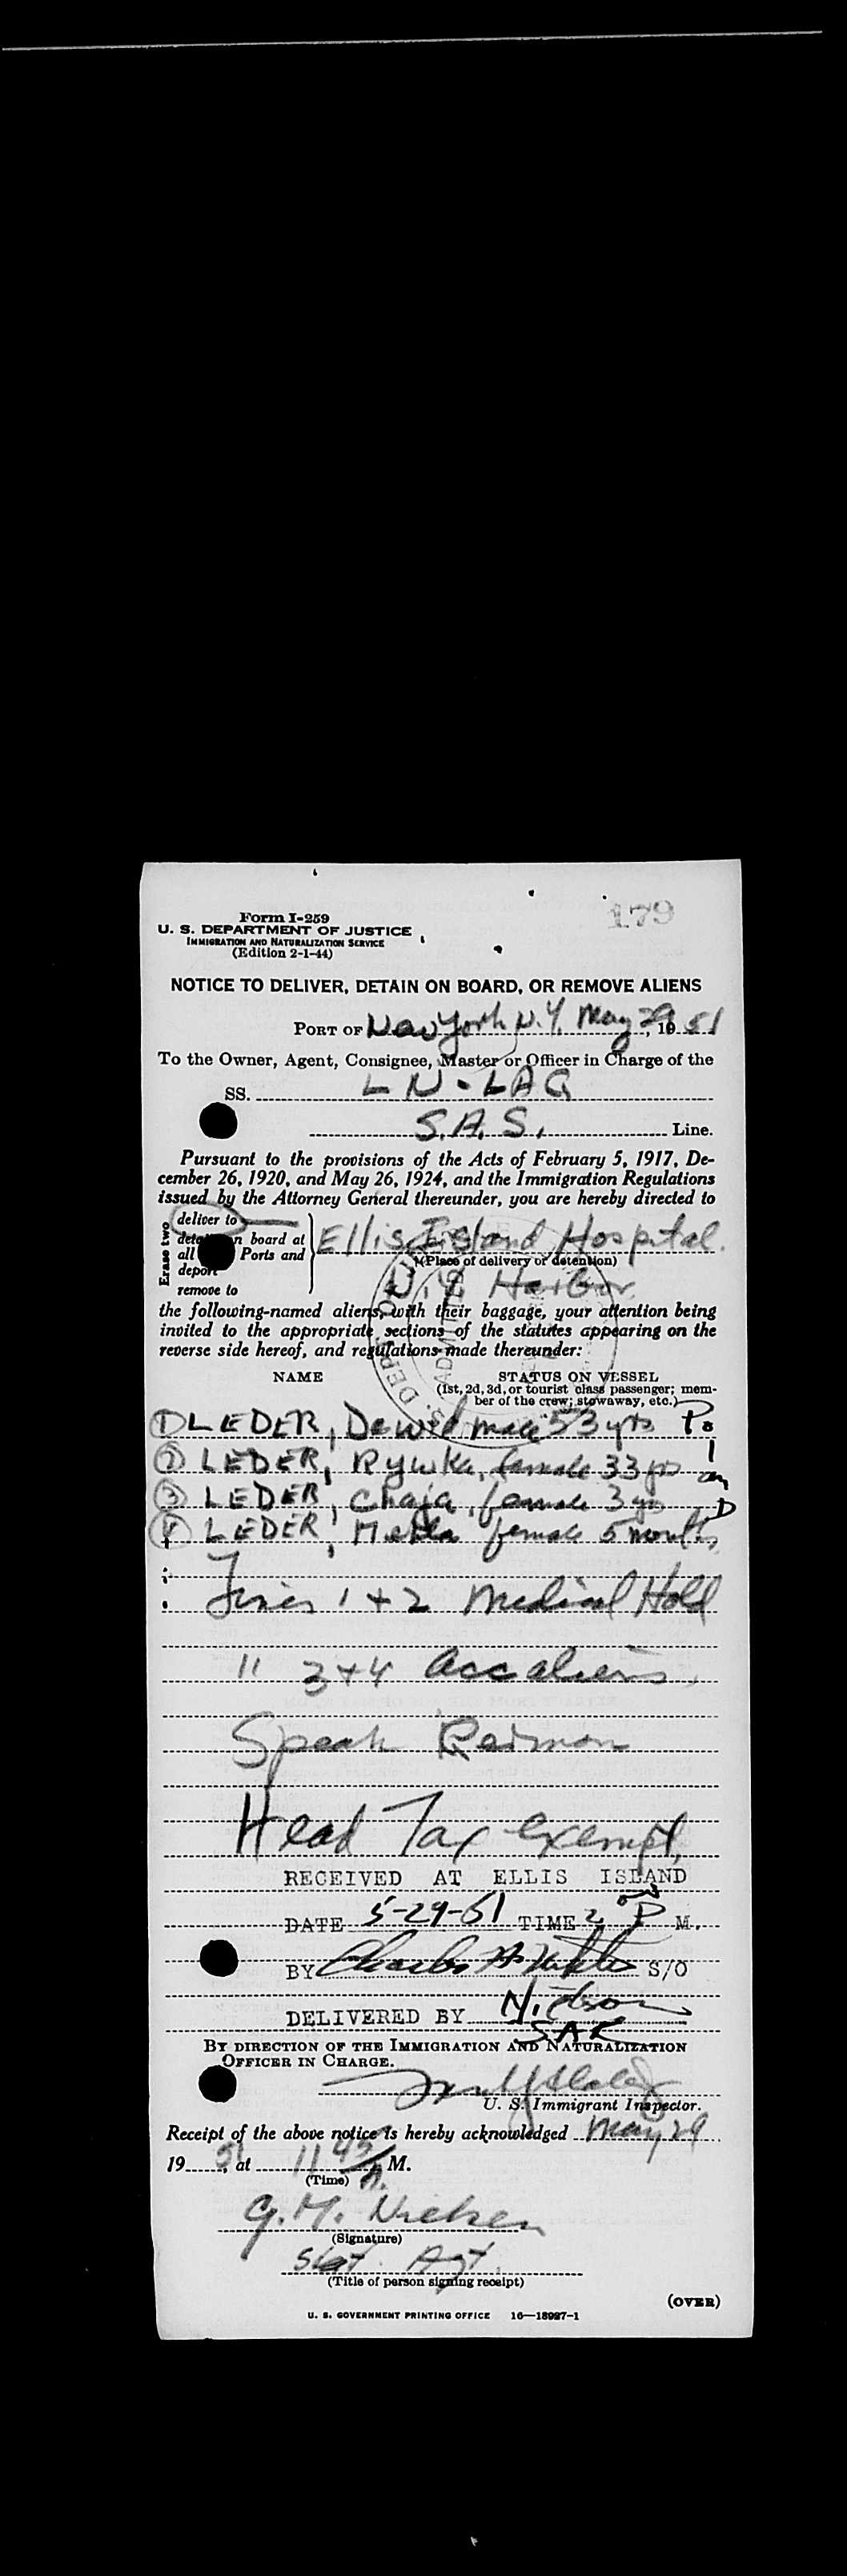 179
Form I-259
U. S. DEPARTMENT OF JUSTICE
IMMIGRATION AND NATURALIZATION SERVICE
(Edition 2-1-44)
NOTICE TO DELIVER, DETAIN ON BOARD, OR REMOVE ALIENS
PORT OF New York N.Y. May 29, 1951
To the Owner, Agent, Consignee, Master or Officer in Charge of the
SS. LN-LAG
S.A.S. Line.
Pursuant to the provisions of the Acts of February 5, 1917, De-
cember 26, 1920, and May 26, 1924, and the Immigration Regulations
issued by the Attorney General thereunder, you are hereby directed to
Erase two
deliver to
n board at
all Ports and
deport
remove to
Ellis Island Hospital
(Place of delivery or detention)
N.Y. Harbor
the following-named aliens, with their baggage, your attention being
invited to the appropriate sections of the statutes appearing on the
reverse side hereof, and regulations made thereunder:
NAME STATUS ON VESSEL
(1st, 2d, 3d, or tourist class passenger; mem-
ber of the crew; stowaway, etc.)
1 LEDER, Dawid male 53 yrs
2 LEDER, Rywka, female 33 yrs
3 LEDER, Chaja, female 3 yrs
4 LEDER, female 5 months
Lines 1 + 2 Medical Hold
" 3+4 acc aliens
Speak
Head Tax exempt
RECEIVED AT ELLIS ISLAND
DATE 5-29-51 TIME 2 P M.
BY Charles S/O
DELIVERED BY
BY DIRECTION OF THE IMMIGRATION AND NATURALIZATION
OFFICER IN CHARGE.
U. S. Immigrant Inspector.
Receipt of the above notice is hereby acknowledged May 29
1951, at 11 45 A. M.
(Time)
G. M. Nielsen
(Signature)
Agt.
(Title of person signing receipt)
(OVER)
U. S. GOVERNMENT PRINTING OFFICE 16—18987-1